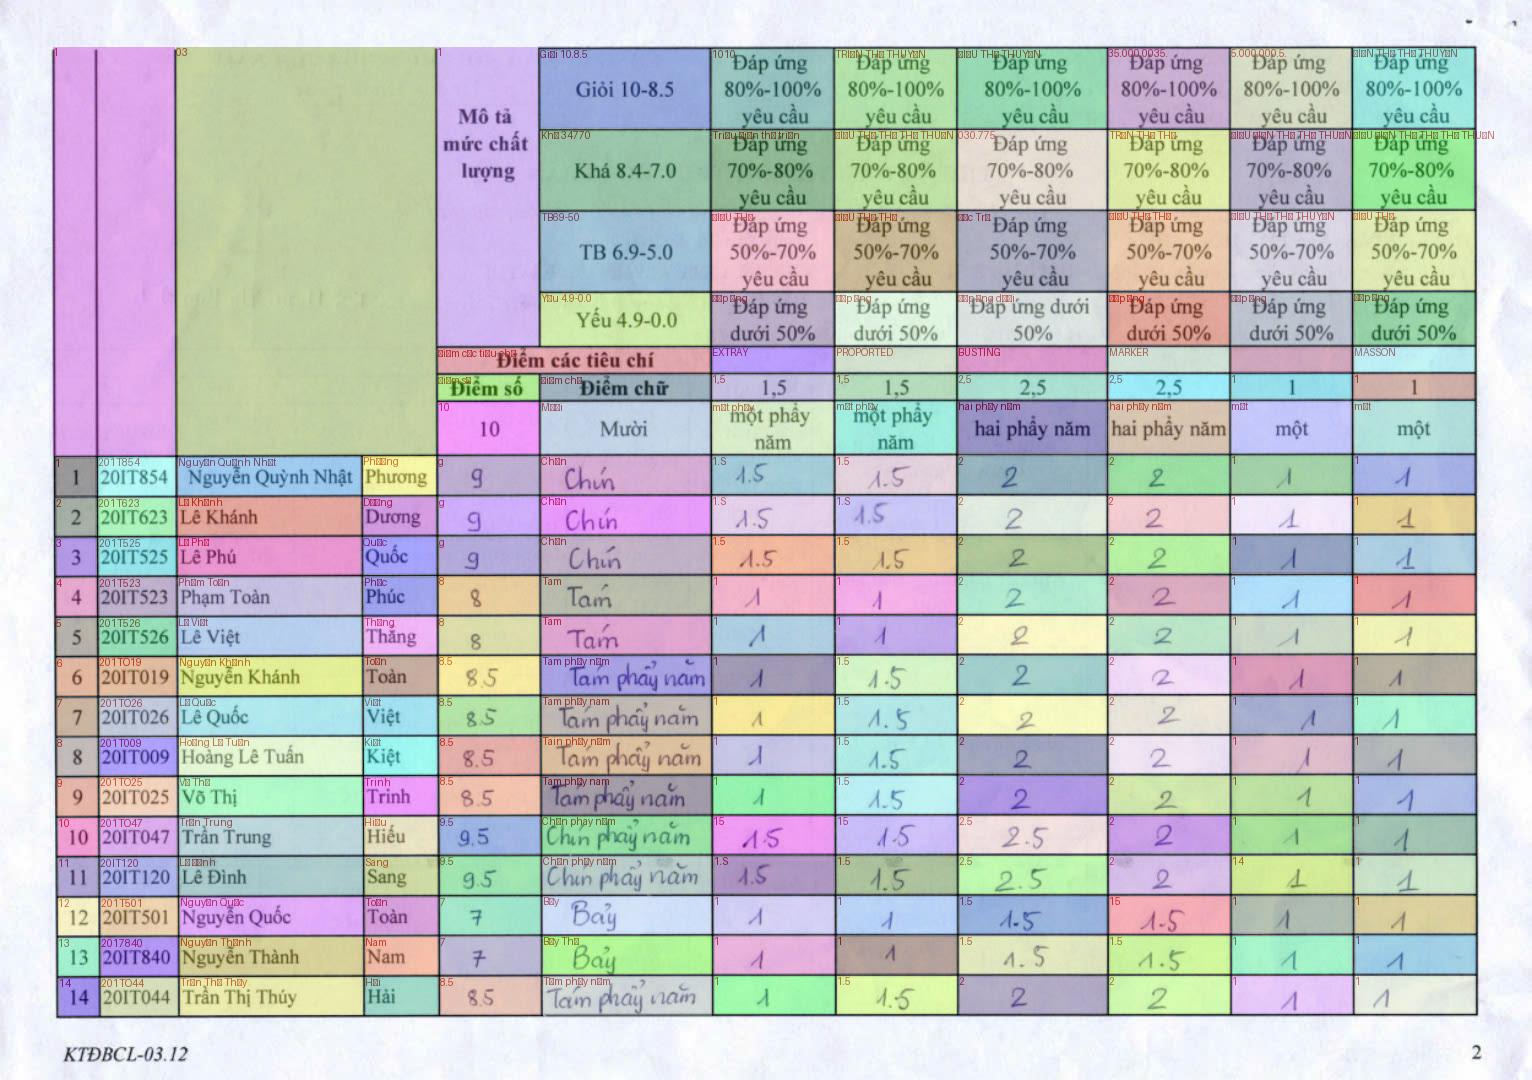 Mô tả mức chất lượng | Giỏi 10-8.5 | Đáp ứng 80%-100% yêu cầu | Đáp ứng 80%-100% yêu cầu | Đáp ứng 80%-100% yêu cầu | Đáp ứng 80%-100% yêu cầu | Đáp ứng 80%-100% yêu cầu | Đáp ứng 80%-100% yêu cầu
Khá 8.4-7.0 | Đáp ứng 70%-80% yêu cầu | Đáp ứng 70%-80% yêu cầu | Đáp ứng 70%-80% yêu cầu | Đáp ứng 70%-80% yêu cầu | Đáp ứng 70%-80% yêu cầu | Đáp ứng 70%-80% yêu cầu
TB 6.9-5.0 | Đáp ứng 50%-70% yêu cầu | Đáp ứng 50%-70% yêu cầu | Đáp ứng 50%-70% yêu cầu | Đáp ứng 50%-70% yêu cầu | Đáp ứng 50%-70% yêu cầu | Đáp ứng 50%-70% yêu cầu
Yếu 4.9-0.0 | Đáp ứng dưới 50% | Đáp ứng dưới 50% | Đáp ứng dưới 50% | Đáp ứng dưới 50% | Đáp ứng dưới 50% | Đáp ứng dưới 50%
Điểm các tiêu chí | EXTRAY | PROPORTED | BUSTING | MARKER | MASSON
Điểm số | Điểm chữ | 1,5 | 1,5 | 2,5 | 2,5 | 1 | 1
10 | Mười | một phẩy năm | một phẩy năm | hai phẩy năm | hai phẩy năm | một | một
1 | 20IT854 | Nguyễn Quỳnh Nhật | Phương | 9 | Chín | 1.5 | 1.5 | 2 | 2 | 1 | 1
2 | 20IT623 | Lê Khánh | Dương | 9 | Chín | 1.5 | 1.5 | 2 | 2 | 1 | 1
3 | 20IT525 | Lê Phú | Quốc | 9 | Chín | 1.5 | 1.5 | 2 | 2 | 1 | 1
4 | 20IT523 | Phạm Toàn | Phúc | 8 | Tám | 1 | 1 | 2 | 2 | 1 | 1
5 | 20IT526 | Lê Việt | Thăng | 8 | Tám | 1 | 1 | 2 | 2 | 1 | 1
6 | 20IT019 | Nguyễn Khánh | Toàn | 8.5 | Tám phẩy năm | 1 | 1.5 | 2 | 2 | 1 | 1
7 | 20IT026 | Lê Quốc | Việt | 8.5 | Tám phẩy năm | 1 | 1.5 | 2 | 2 | 1 | 1
8 | 20IT009 | Hoàng Lê Tuấn | Kiệt | 8.5 | Tám phẩy năm | 1 | 1.5 | 2 | 2 | 1 | 1
9 | 20IT025 | Võ Thị | Trinh | 8.5 | Tám phẩy năm | 1 | 1.5 | 2 | 2 | 1 | 1
10 | 20IT047 | Trần Trung | Hiếu | 9.5 | Chín phẩy năm | 1.5 | 1.5 | 2.5 | 2 | 1 | 1
11 | 20IT120 | Lê Đình | Sang | 9.5 | Chín phẩy năm | 1.5 | 1.5 | 2.5 | 2 | 1 | 1
12 | 20IT501 | Nguyễn Quốc | Toàn | 7 | Bảy | 1 | 1 | 1.5 | 1.5 | 1 | 1
13 | 20IT840 | Nguyễn Thành | Nam | 7 | Bảy | 1 | 1 | 1.5 | 1.5 | 1 | 1
14 | 20IT044 | Trần Thị Thúy | Hải | 8.5 | Tám phẩy năm | 1 | 1.5 | 2 | 2 | 1 | 1
KTĐBCL-03.12
2